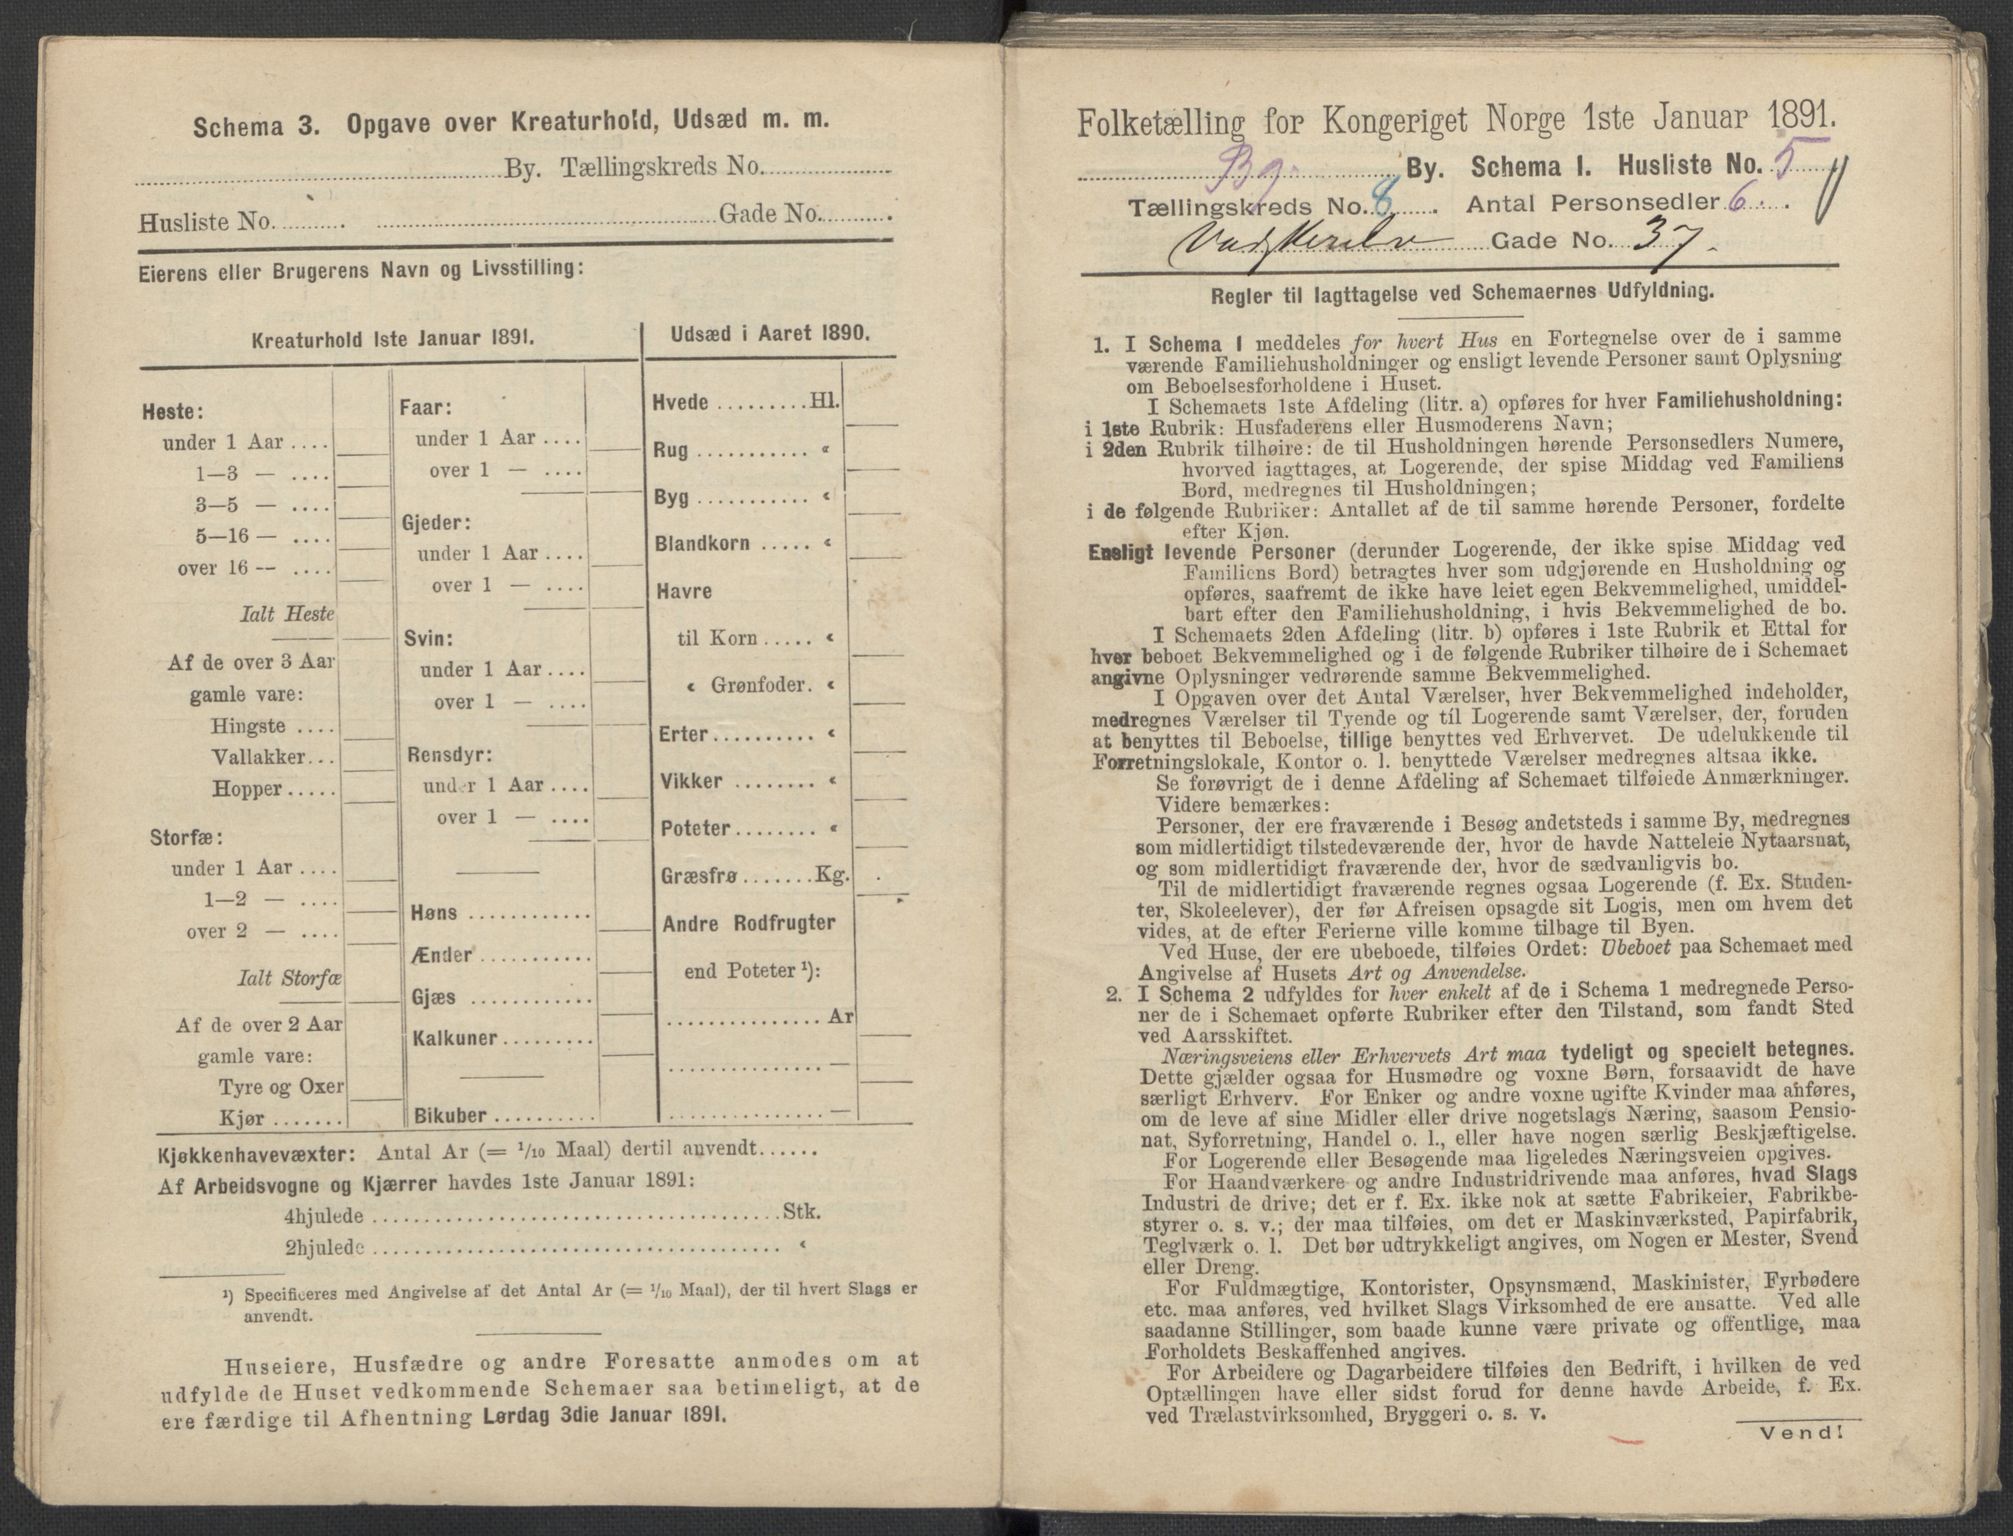 Schema 3. Opgave over Kreaturhold, Udsæd m. m.
By. Tællingskreds No.
Husliste No. Gade No.
Eierens eller Brugerens Navn og Livsstilling:
Kreaturhold 1ste Januar 1891.
Heste:
under 1 Aar ....
1—3 — ....
3—5 — ....
5—16 — ....
over 16 — ....
Ialt Heste
Af de over 3 Aar
gamle vare:
Hingste ....
Vallakker...
Hopper.....
Storfæ:
under 1 Aar ....
1—2 — ....
over 2 — ....
Ialt Storfæ
Af de over 2 Aar
gamle vare:
Tyre og Oxer
Kjør .......
Faar:
under 1 Aar ....
over 1 — ....
Gjeder:
under 1 Aar ....
over 1 — ....
Svin:
under 1 Aar ....
over 1 — ....
Rensdyr:
under 1 Aar ....
over 1 — ....
Høns ............
Ænder ...........
Gjæs ............
Kalkuner.........
Bikuber ..........
Udsæd i Aaret 1890.
Hvede .........Hl.
Rug ........... «
Byg ........... «
Blandkorn ..... «
Havre
til Korn ..... «
« Grønfoder. «
Erter.......... «
Vikker ........ «
Poteter........ «
Græsfrø.......Kg.
Andre Rodfrugter
end Poteter ¹):
............... Ar
............... —
............... —
Kjøkkenhavevæxter: Antal Ar (= 1/10 Maal) dertil anvendt......
Af Arbeidsvogne og Kjærrer havdes 1ste Januar 1891:
4hjulede ..........Stk.
2hjulede .......... «
¹) Specificeres med Angivelse af det Antal Ar (= 1/10 Maal), der til hvert Slags er
anvendt.
Huseiere, Husfædre og andre Foresatte anmodes om at
udfylde de Huset vedkommende Schemaer saa betimeligt, at de
ere færdige til Afhentning Lørdag 3die Januar 1891.
Folketælling for Kongeriget Norge 1ste Januar 1891.
Bg. By. Schema 1. Husliste No. 5
Tællingskreds No. 8. Antal Personsedler 6.
Gade No. 37.
Regler til Iagttagelse ved Schemaernes Udfyldning.
1. I Schema 1 meddeles for hvert Hus en Fortegnelse over de i samme
værende Familiehusholdninger og ensligt levende Personer samt Oplysning
om Beboelsesforholdene i Huset.
I Schemaets 1ste Afdeling (litr. a) opføres for hver Familiehusholdning:
i 1ste Rubrik: Husfaderens eller Husmoderens Navn;
i 2den Rubrik tilhøire: de til Husholdningen hørende Personsedlers Numere,
hvorved iagttages, at Logerende, der spise Middag ved Familiens
Bord, medregnes til Husholdningen;
i de følgende Rubriker: Antallet af de til samme hørende Personer, fordelte
efter Kjøn.
Ensligt levende Personer (derunder Logerende, der ikke spise Middag ved
Familiens Bord) betragtes hver som udgjørende en Husholdning og
opføres, saafremt de ikke have leiet egen Bekvemmelighed, umiddel-
bart efter den Familiehusholdning, i hvis Bekvemmelighed de bo.
I Schemaets 2den Afdeling (litr. b) opføres i 1ste Rubrik et Ettal for
hver beboet Bekvemmelighed og i de følgende Rubriker tilhøire de i Schemaet
angivne Oplysninger vedrørende samme Bekvemmelighed.
I Opgaven over det Antal Værelser, hver Bekvemmelighed indeholder,
medregnes Værelser til Tyende og til Logerende samt Værelser, der, foruden
at benyttes til Beboelse, tillige benyttes ved Erhvervet. De udelukkende til
Forretningslokale, Kontor o. l. benyttede Værelser medregnes altsaa ikke.
Se forøvrigt de i denne Afdeling af Schemaet tilføiede Anmærkninger.
Videre bemærkes:
Personer, der ere fraværende i Besøg andetsteds i samme By, medregnes
som midlertidigt tilstedeværende der, hvor de havde Natteleie Nytaarsnat,
og som midlertidigt fraværende der, hvor de sædvanligvis bo.
Til de midlertidigt fraværende regnes ogsaa Logerende (f. Ex. Studen-
ter, Skoleelever), der før Afreisen opsagde sit Logis, men om hvem det
vides, at de efter Ferierne ville komme tilbage til Byen.
Ved Huse, der ere ubeboede, tilføies Ordet: Ubeboet paa Schemaet med
Angivelse af Husets Art og Anvendelse.
2. I Schema 2 udfyldes for hver enkelt af de i Schema 1 medregnede Perso-
ner de i Schemaet opførte Rubriker efter den Tilstand, som fandt Sted
ved Aarsskiftet.
Næringsveiens eller Erhvervets Art maa tydeligt og specielt betegnes.
Dette gjælder ogsaa for Husmødre og voxne Børn, forsaavidt de have
særligt Erhverv. For Enker og andre voxne ugifte Kvinder maa anføres,
om de leve af sine Midler eller drive nogetslags Næring, saasom Pensio-
nat, Syforretning, Handel o. l., eller have nogen særlig Beskjæftigelse.
For Logerende eller Besøgende maa ligeledes Næringsveien opgives.
For Haandværkere og andre Industridrivende maa anføres, hvad Slags
Industri de drive; det er f. Ex. ikke nok at sætte Fabrikeier, Fabrikbe-
styrer o. s. v.; der maa tilføies, om det er Maskinværksted, Papirfabrik,
Teglværk o. l. Det bør udtrykkeligt angives, om Nogen er Mester, Svend
eller Dreng.
For Fuldmægtige, Kontorister, Opsynsmænd, Maskinister, Fyrbødere
etc. maa anføres, ved hvilket Slags Virksomhed de ere ansatte. Ved alle
saadanne Stillinger, som baade kunne være private og offentlige, maa
Forholdets Beskaffenhed angives.
For Arbeidere og Dagarbeidere tilføies den Bedrift, i hvilken de ved
Optællingen have eller sidst forud for denne havde Arbeide, f. Ex.
ved Trælastvirksomhed, Bryggeri o. s. v.
Vend!